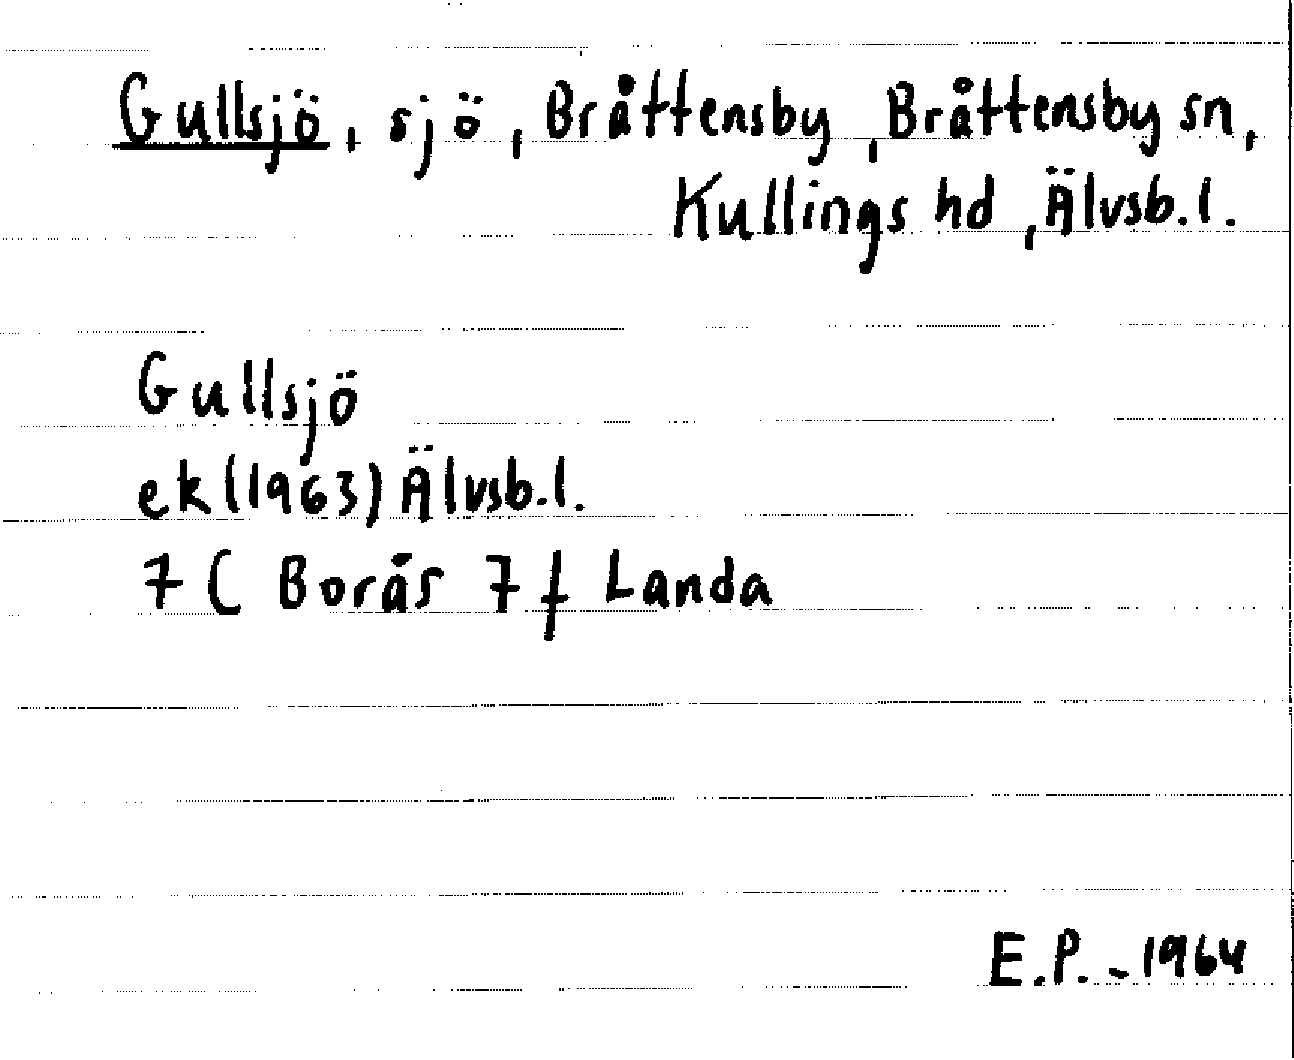 Gullsjö, sjö, Bråttensby, Bråttensby sn,
Kullings hd, Älvsb.l.
Gullsjö
ek(1963) Älvsb.l.
7 C Borås 7 f Landa
E.P. - 1964